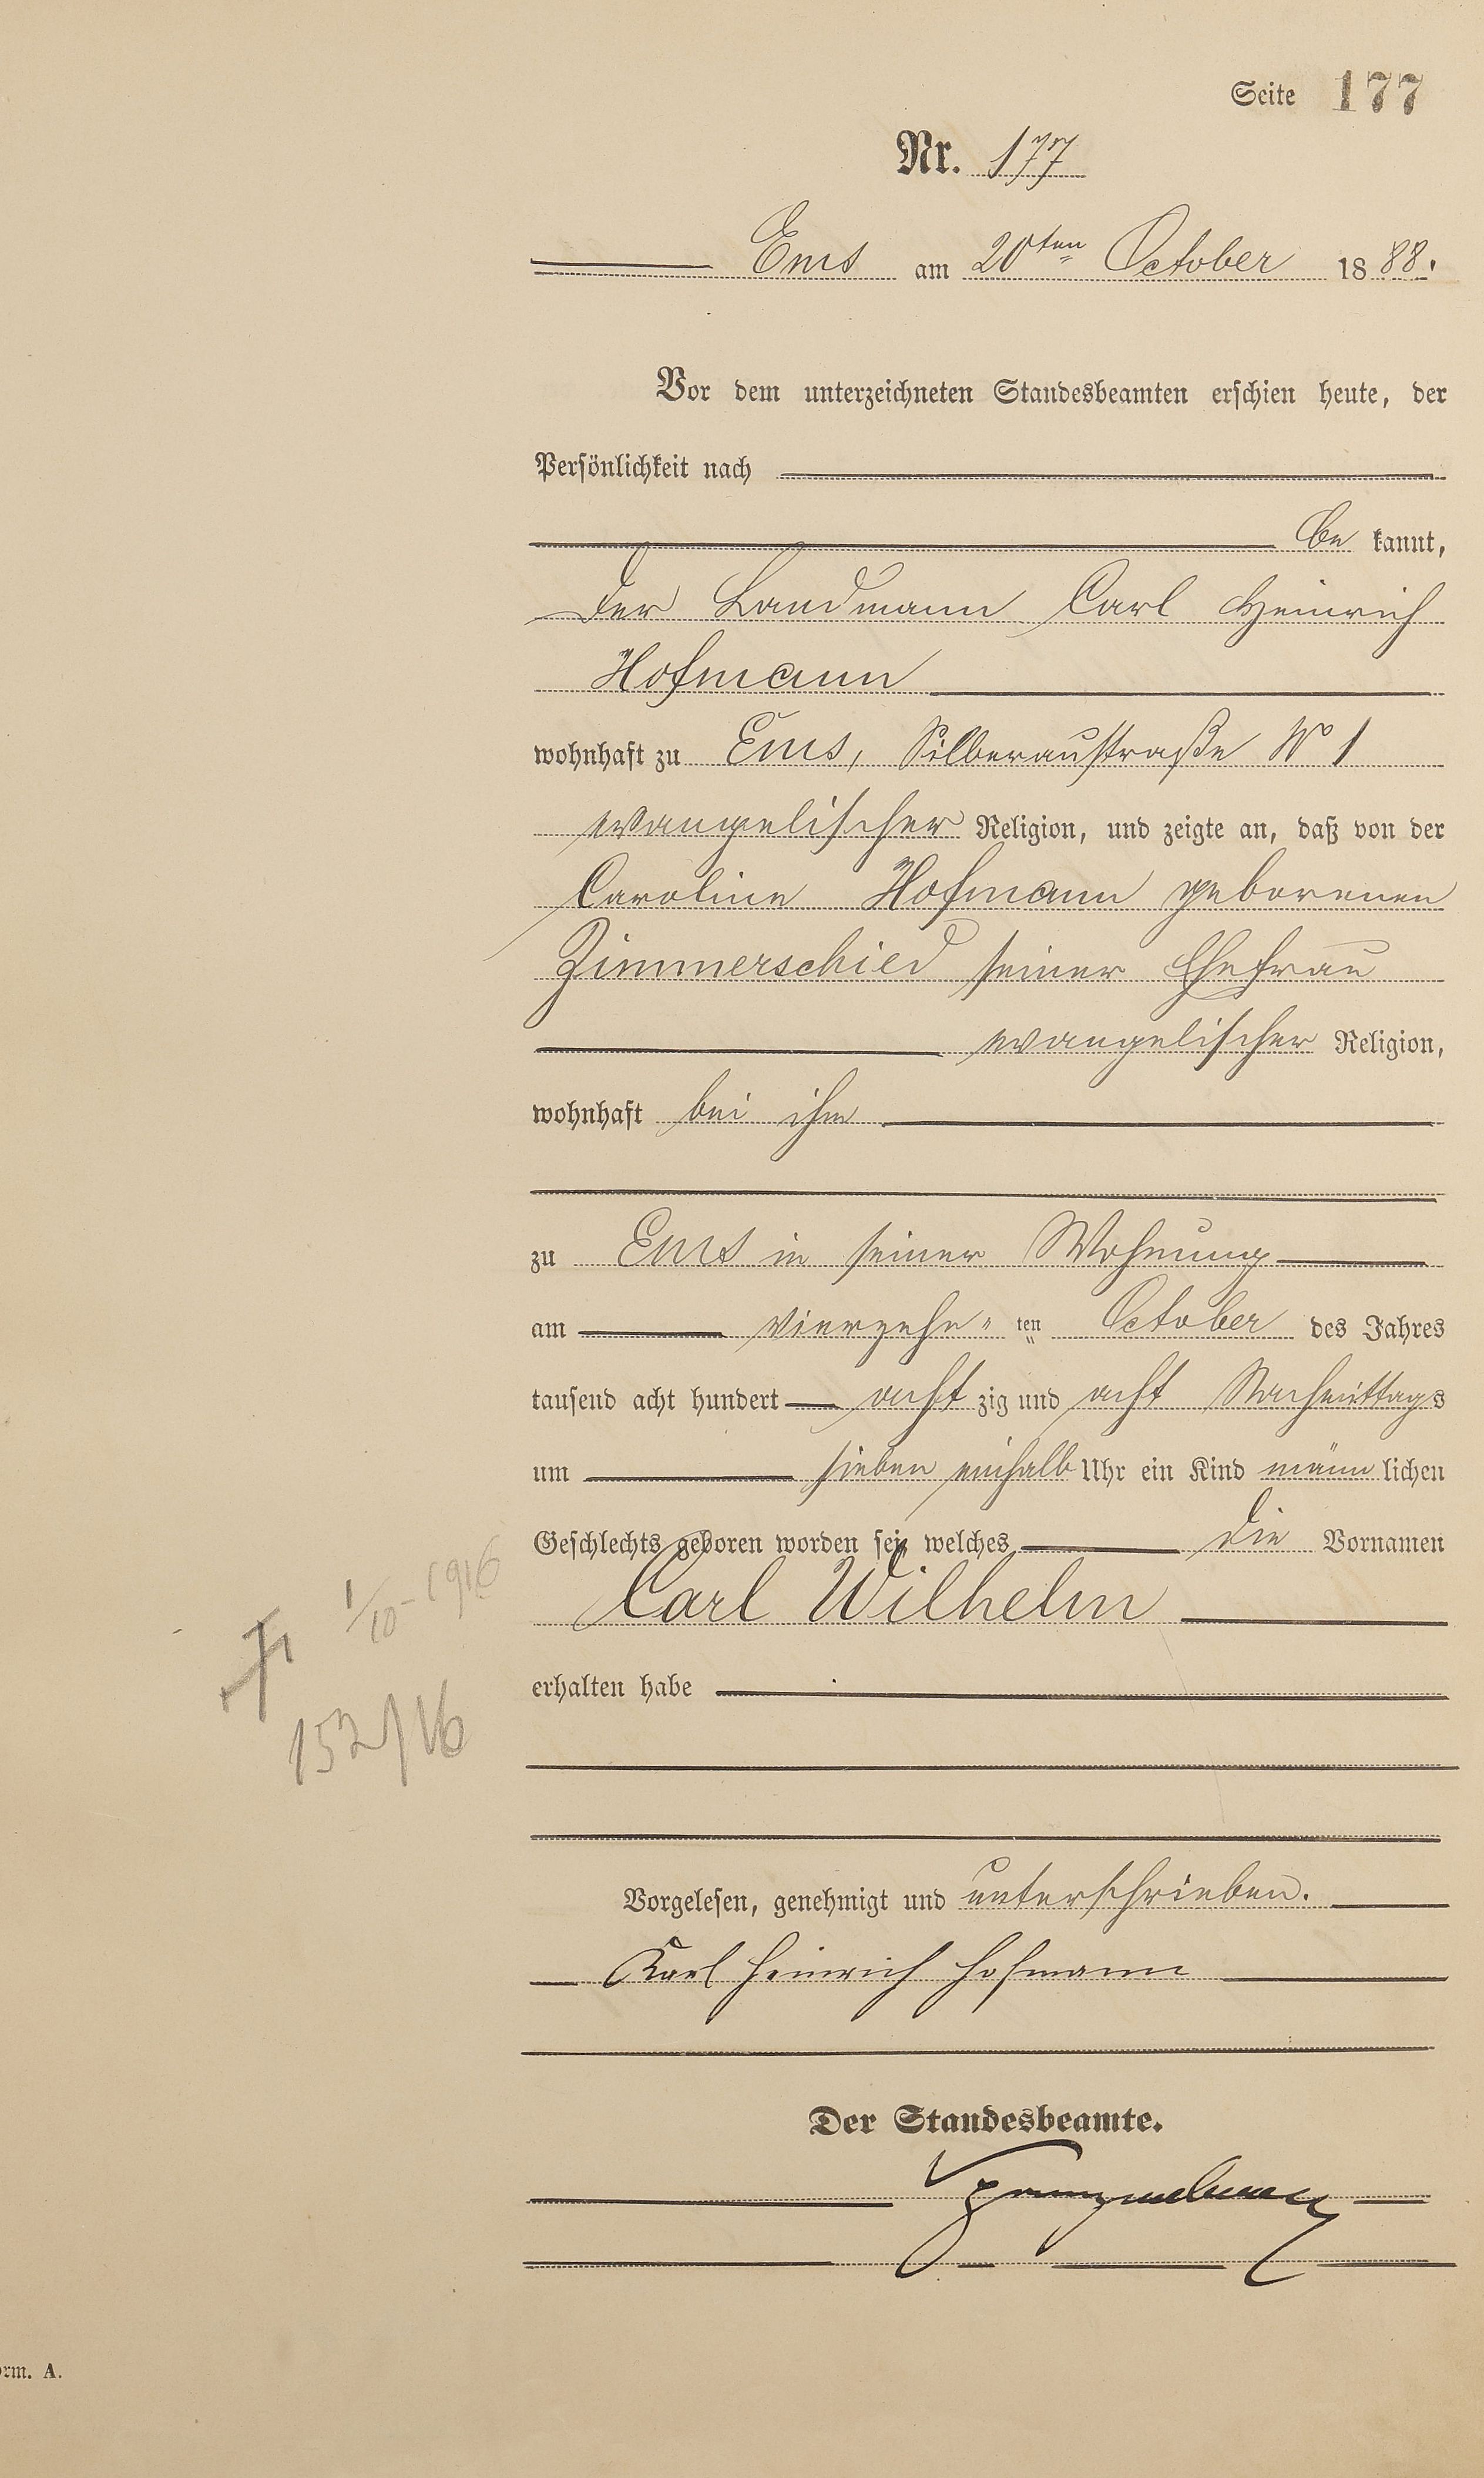 Seite 177
Nr. 177
Ems am 20ten October 1888.
Vor dem unterzeichneten Standesbeamten erschien heute, der
Persönlichkeit nach
be kannt,
der Landmann Carl Heinrich
Hofmann
wohnhaft zu Ems, Silberaustraße No 1
evangelischer Religion, und zeigte an, daß von der
Caroline Hofmann geborenen
Zimmerschied seiner Ehefrau
evangelischer Religion,
wohnhaft bei ihm
zu Ems in seiner Wohnung
am vierzehn ten October des Jahres
tausend acht hundert acht zig und acht Nachmittags
um sieben einhalb Uhr ein Kind männ lichen
Geschlechts geboren worden sei, welches die Vornamen
Carl Wilhelm
1/10-1916
erhalten habe
152/16
Vorgelesen, genehmigt und unterschrieben.
Karl Heinrich Hofmann
Der Standesbeamte.
orm. A.